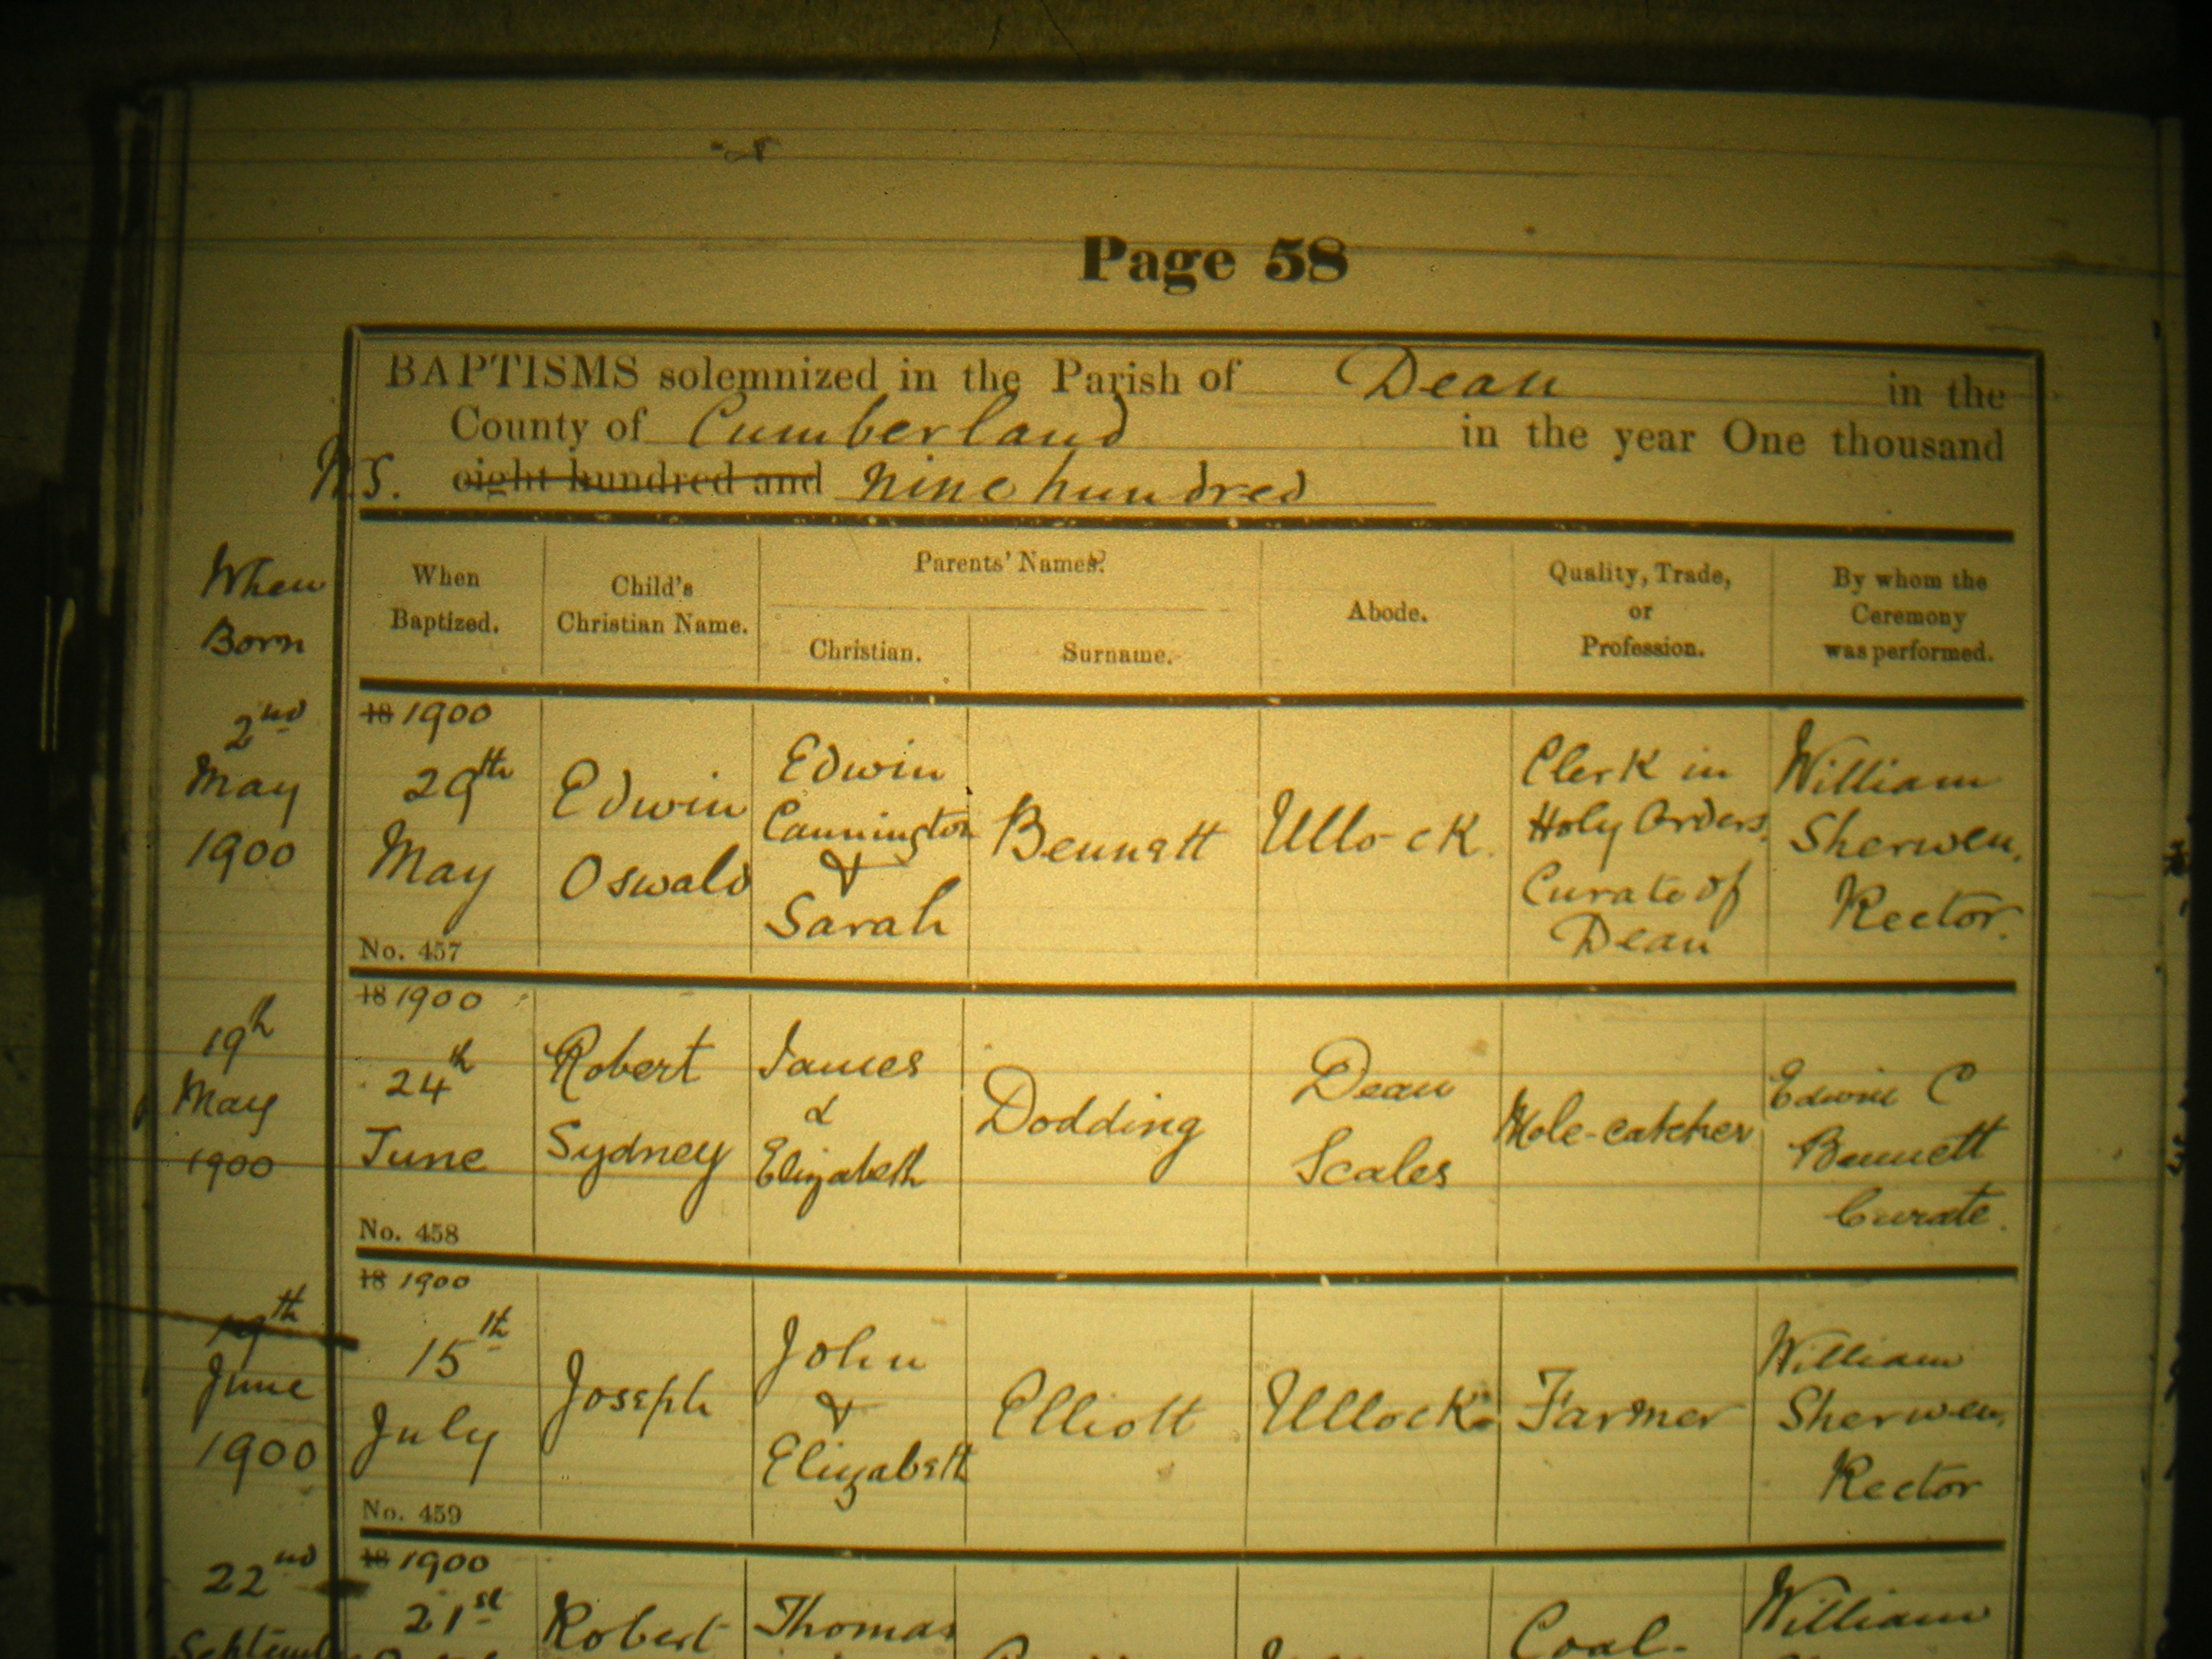 Page 58
BAPTISMS solemnized in the Parish of Dean in the
County of Cumberland in the year One thousand
W.S. eight hundred and nine hundred
When
Born
When
Baptized.
Child's
Christian Name.
Parents' Names.
Christian.
Surname.
Abode.
Quality, Trade,
or
Profession.
By whom the
Ceremony
was performed.
2nd
May
1900
18 1900
29th
May
No. 457
Edwin
Oswald
Edwin
Cannington
&
Sarah
Bennett
Ullock
Clerk in
Holy Orders.
Curate of
Dean
William
Sherwen,
Rector.
19th
May
1900
18 1900
24th
June
No. 458
Robert
Sydney
James
&
Elizabeth
Dodding
Dean
Scales
Mole-catcher
Edwin C
Bennett
Curate.
19th
June
1900
18 1900
15th
July
No. 459
Joseph
John
&
Elizabeth
Elliott
Ullock
Farmer
William
Sherwen,
Rector
22nd
18 1900
21st
Robert
Thomas
Coal-
William